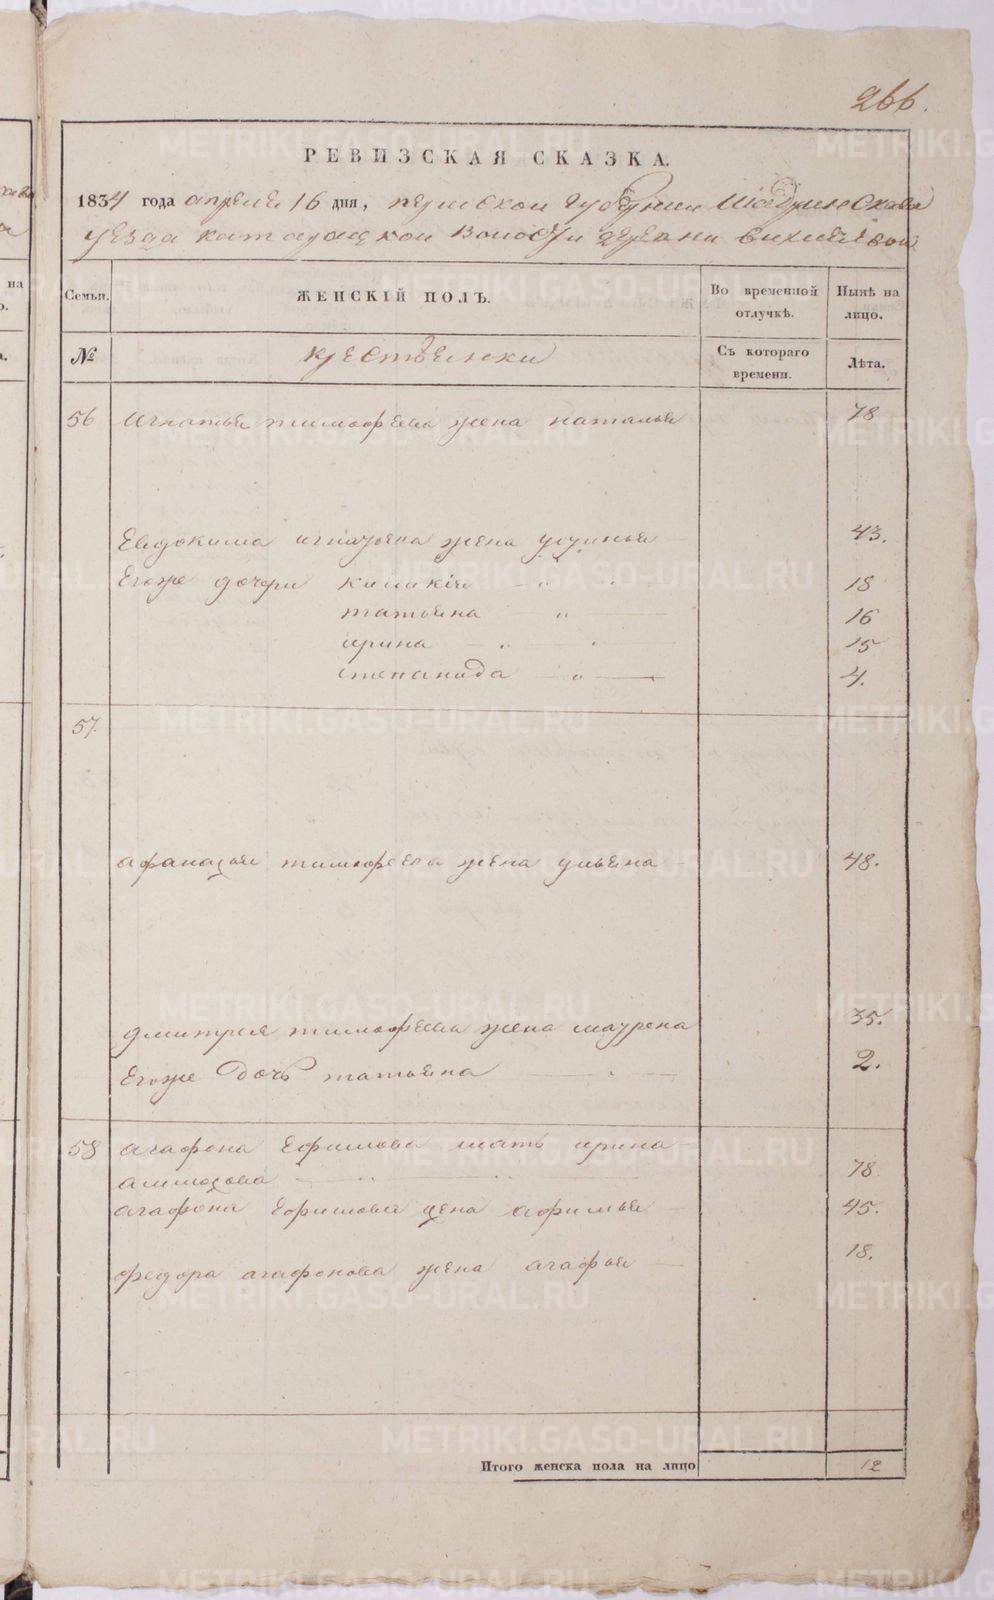 266.
РЕВИЗСКАЯ СКАЗКА.
1834 года апреля 16 дня, пермской губернии Шадринскаго
уезда катарацкой волости деревни
Семьи. ЖЕНСКІЙ ПОЛЪ. Во временной отлучкѣ. Нынѣ на лицо.
№ крестьянки Съ котораго времени. Лѣта.
56 игнатья тимофеева жена наталья 78
Евдокима игнатьева жена устинья 43.
Егоже дочери киликія 18
татьяна 16
ирина 15
степанида 4.
57.
афанасья тимофеева жена ульяна 48.
дмитрея тимофеева жена маурена 35.
Егоже дочь татьяна 2.
58 агафона Ефимова мать ирина
78
агафона Ефимова жена афимья 45.
федора агафонова жена агафья 18.
Итого женска пола на лицо 12
METRIKI.GASO-URAL.RU